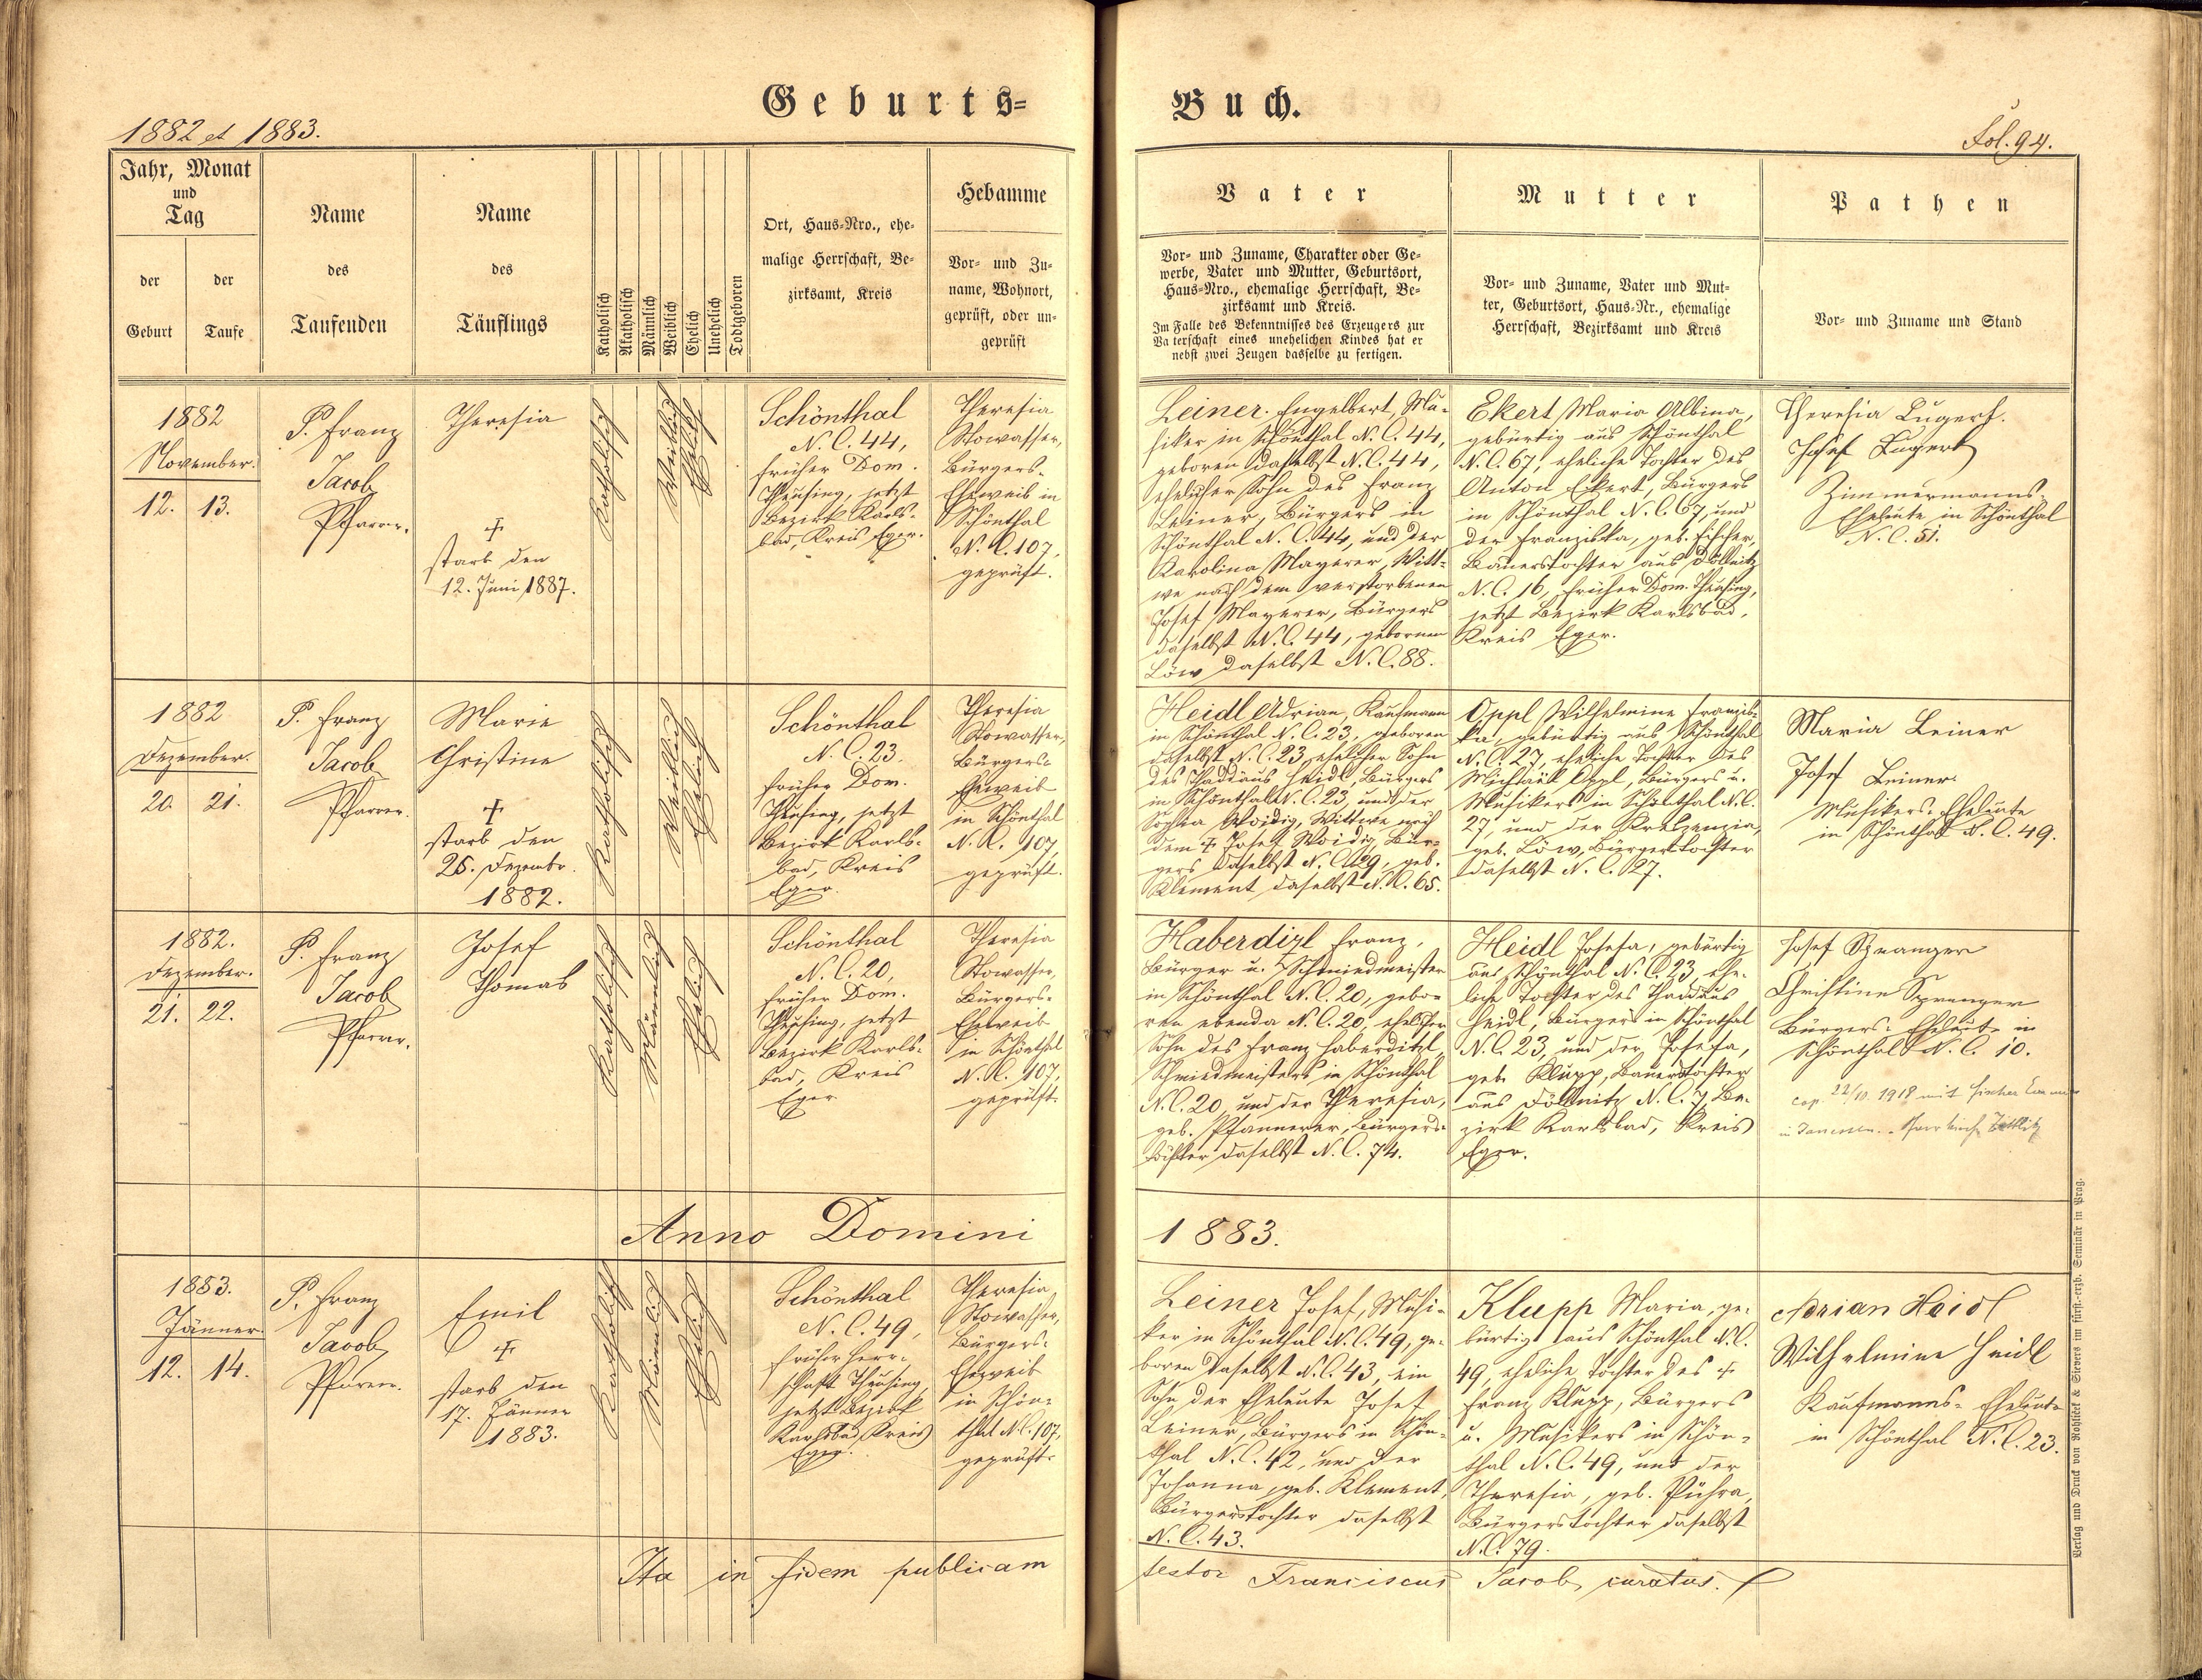 Geburts=
Buch.
1882 et 1883.
Fol. 94.
Jahr, Monat
und
Tag
der
Geburt
der
Taufe
Name
des
Taufenden
Name
des
Täuflings
Katholisch
Akatholisch
Männlich
Weiblich
Ehelich
Unehelich
Todtgeboren
Ort, Haus=Nro., ehe=
malige Herrschaft, Be=
zirksamt, Kreis
Hebamme
Vor= und Zu=
name, Wohnort,
geprüft, oder un=
geprüft
Vater
Vor= und Zuname, Charakter oder Ge=
werbe, Vater und Mutter, Geburtsort,
Haus=Nro., ehemalige Herrschaft, Be=
zirksamt und Kreis.
Im Falle des Bekenntnisses des Erzeugers zur
Vaterschaft eines unehelichen Kindes hat er
nebst zwei Zeugen dasselbe zu fertigen.
Mutter
Vor= und Zuname, Vater und Mut=
ter, Geburtsort, Haus=Nr., ehemalige
Herrschaft, Bezirksamt und Kreis
Pathen
Vor= und Zuname und Stand
1882
November.
12. 13.
P. Franz
Jacob
Pfarrer.
Theresia
+
starb den
12. Juni 1887.
Katholisch
Weiblich
Ehelich
Schönthal
N. C. 44,
früher Dom.
Theusing, jetzt
Bezirk Karls=
bad, Kreis Eger.
Theresia
Stowasser,
Bürgers=
Eheweib in
Schönthal
N. C. 107,
geprüft.
Leiner Engelbert, Mu=
siker in Schönthal N. C. 44,
geboren daselbst N. C. 44,
ehelicher Sohn des Franz
Leiner, Bürgers in
Schönthal N. C. 44, und der
Karolina Mayerer, Witt=
we nach dem verstorbenen
Josef Mayerer, Bürgers
daselbst N. C. 44, gebornen
Löw daselbst N. C. 88.
Ekert Maria Albina,
gebürtig aus Schönthal
N. C. 67, eheliche Tochter des
Anton Ekert, Bürgers
in Schönthal N. C. 67, und
der Franziska, geb. Fischer,
Bauerstochter aus Döllnitz
N. C. 16, früher Dom. Theusing,
jetzt Bezirk Karlsbad,
Kreis Eger.
Theresia Lugert.
Josef Lugert
Zimmermanns=
Eheleute in Schönthal
N. C. 51.
1882
Dezember.
20. 21.
P. Franz
Jacob
Pfarrer.
Marie
Christine
+
starb den
25. Dezembr.
1882.
Katholisch
Weiblich
Ehelich
Schönthal
N. C. 23,
früher Dom.
Theusing, jetzt
Bezirk Karls=
bad, Kreis
Eger.
Theresia
Stowasser,
Bürgers=
Eheweib
in Schönthal
N. C. 107,
geprüft.
Heidl Adrian, Kaufmann
in Schönthal N. C. 23, geboren
daselbst N. C. 23, ehelicher Sohn
des Thaddäus Heidl, Bürgers
in Schönthal N. C. 23, und der
Sophia Woidig, Wittwe nach
dem + Josef Woidig, Bür=
gers daselbst N. C. 29, geb.
Klement daselbst N. C. 65.
Oppl Wilhelmine Franzis=
ka, gebürtig aus Schönthal
N. C. 27, eheliche Tochter des
Michael Oppl, Bürgers u.
Musikers in Schönthal N. C.
27, und der Kreszenzia,
geb. Löw, Bürgerstochter
daselbst N. C. 27.
Maria Leiner
Josef Leiner
Musikers=Eheleute
in Schönthal N. C. 49.
1882.
Dezember.
21. 22.
P. Franz
Jacob
Pfarrer.
Josef
Thomas
Katholisch
Männlich
Ehelich
Schönthal
N. C. 20,
früher Dom.
Theusing, jetzt
Bezirk Karls=
bad, Kreis
Eger
Theresia
Stowasser,
Bürgers=
Eheweib
in Schönthal
N. C. 107,
geprüft.
Haberdizl Franz,
Bürger u. Schmiedmeister
in Schönthal N. C. 20, gebo=
ren ebenda N. C. 20, ehelicher
Sohn des Franz Haberditzl,
Schmiedmeisters in Schönthal
N. C. 20, und der Theresia,
geb. Pfannerer, Bürgers=
tochter daselbst N. C. 74.
Heidl Josefa, gebürtig
aus Schönthal N. C. 23, ehe=
liche Tochter des Thaddäus
Heidl, Bürgers in Schönthal
N. C. 23, und der Josefa,
geb. Klupp, Bauerstochter
aus Döllnitz N. C. 7, Be=
zirk Karlsbad, Kreis
Eger.
Josef
Christine Sprenger
Bürgers=Eheleute in
Schönthal N. C. 10.
cop. 22/10. 1918 mit Fischer
in Janessen. Pfarrkirche Zettlitz
Anno Domini
1883.
1883.
Jänner.
12. 14.
P. Franz
Jacob
Pfarrer.
Emil
+
starb den
17. Jänner
1883.
Katholisch
Männlich
Ehelich
Schönthal
N. C. 49,
früher Herr=
schaft Theusing,
jetzt Bezirk
Karlsbad, Kreis
Eger.
Theresia
Stowasser,
Bürgers=
Eheweib
in Schön=
thal N. C. 107,
geprüft.
Leiner Josef, Musi=
ker in Schönthal N. C. 49, ge=
boren daselbst N. C. 43, ein
Sohn der Eheleute Josef
Leiner, Bürgers in Schön=
thal N. C. 42, und der
Johanna, geb. Klement,
Bürgerstochter daselbst
N. C. 43.
Klupp Maria, ge=
bürtig aus Schönthal N. C.
49, eheliche Tochter des +
Franz Klupp, Bürgers
u. Musikers in Schön=
thal N. C. 49, und der
Theresia, geb. Pühra,
Bürgerstochter daselbst
N. C. 79.
Adrian Heidl
Wilhelmine Heidl
Kaufmanns=Eheleute
in Schönthal N. C. 23.
Ita in fidem publicam
testor Franciscus Jacob, curatus.
Verlag und Druck von Rohliček & Sievers im fürst.=erzb. Seminär in Prag.